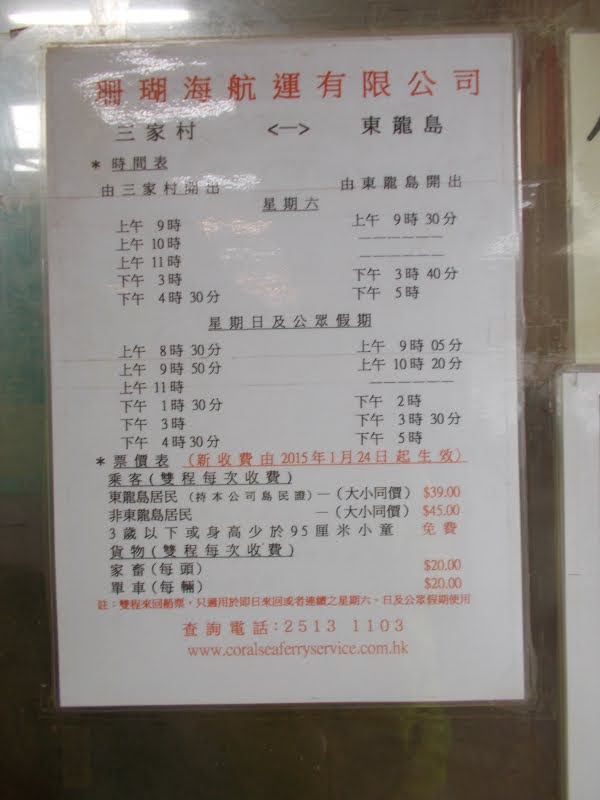 珊瑚海航運有限公司
三家村 <—> 東龍島
* 時間表
由三家村開出 由東龍島開出
星期六
上午 9時 上午 9時30分
上午 10時 ——————
上午 11時 ——————
下午 3時 下午 3時40分
下午 4時30分 下午 5時
星期日及公眾假期
上午 8時30分 上午 9時05分
上午 9時50分 上午 10時20分
上午 11時 ——————
下午 1時30分 下午 2時
下午 3時 下午 3時30分
下午 4時30分 下午 5時
* 票價表 (新收費由2015年1月24日起生效)
乘客(雙程每次收費)
東龍島居民 (持本公司島民證) —(大小同價) $39.00
非東龍島居民 —(大小同價) $45.00
3歲以下或身高少於95厘米小童 免費
貨物(雙程每次收費)
家畜(每頭) $20.00
單車(每輛) $20.00
註:雙程來回船票,只適用於即日來回或者連續之星期六、日及公眾假期使用
查詢電話:2513 1103
www.coralseaferryservice.com.hk